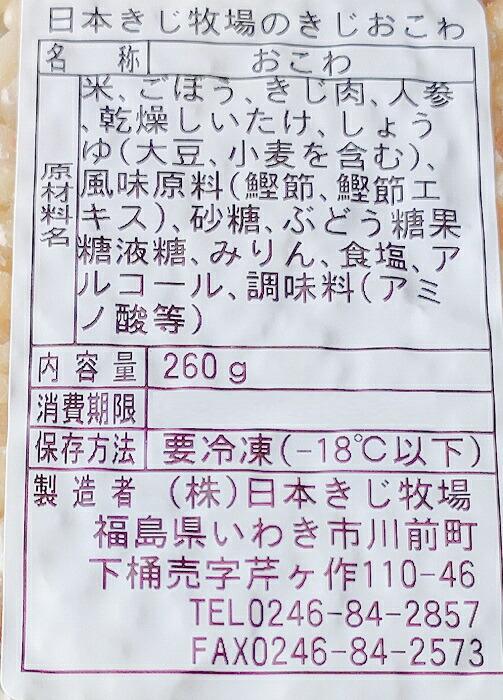 日本きじ牧場のきじおこわ
名称 おこわ
原材料名 米、ごぼう、きじ肉、人参
、乾燥しいたけ、しょう
ゆ(大豆、小麦を含む)、
風味原料(鰹節、鰹節エ
キス)、砂糖、ぶどう糖果
糖液糖、みりん、食塩、ア
ルコール、調味料(アミ
ノ酸等)
内容量 260g
消費期限
保存方法 要冷凍(-18℃以下)
製造者 (株)日本きじ牧場
福島県いわき市川前町
下桶売字芹ヶ作110-46
TEL0246-84-2857
FAX0246-84-2573